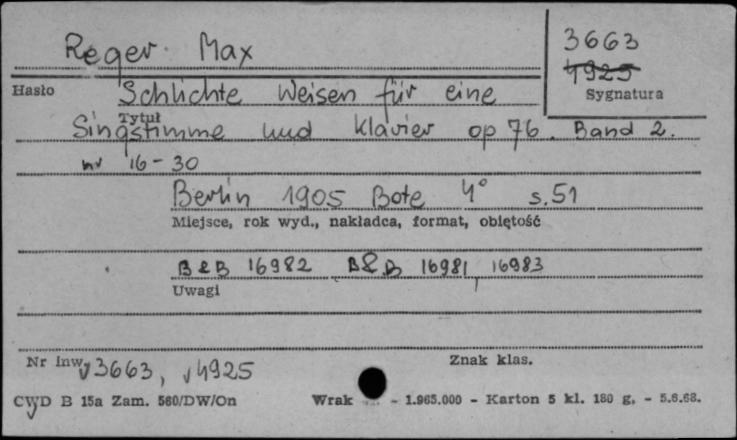 Reger Max
3663
4925
Hasło
Sygnatura
Schlichte Weisen für eine
Tytuł
Singstimme und Klavier op 76. Band 2.
nr 16-30
Berlin 1905 Bote 4° s. 51
Miejsce, rok wyd., nakładca, format, obiętość
B&B 16982 B&B 16981, 16983
Uwagi
Nr inw. 3663, 4925
Znak klas.
CWD B 15a Zam. 560/DW/On Wrak - 1.965.000 - Karton 5 kl. 180 g. - 5.6.68.